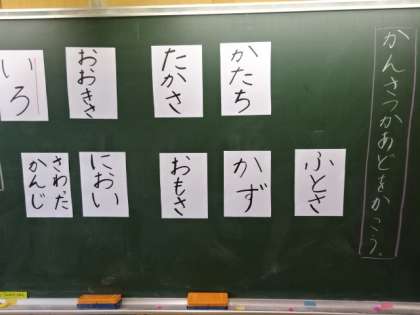 かんさつかあどをかこう。
かたち
たかさ
おおきさ
いろ
ふとさ
かず
おもさ
におい
さわった
かんじ